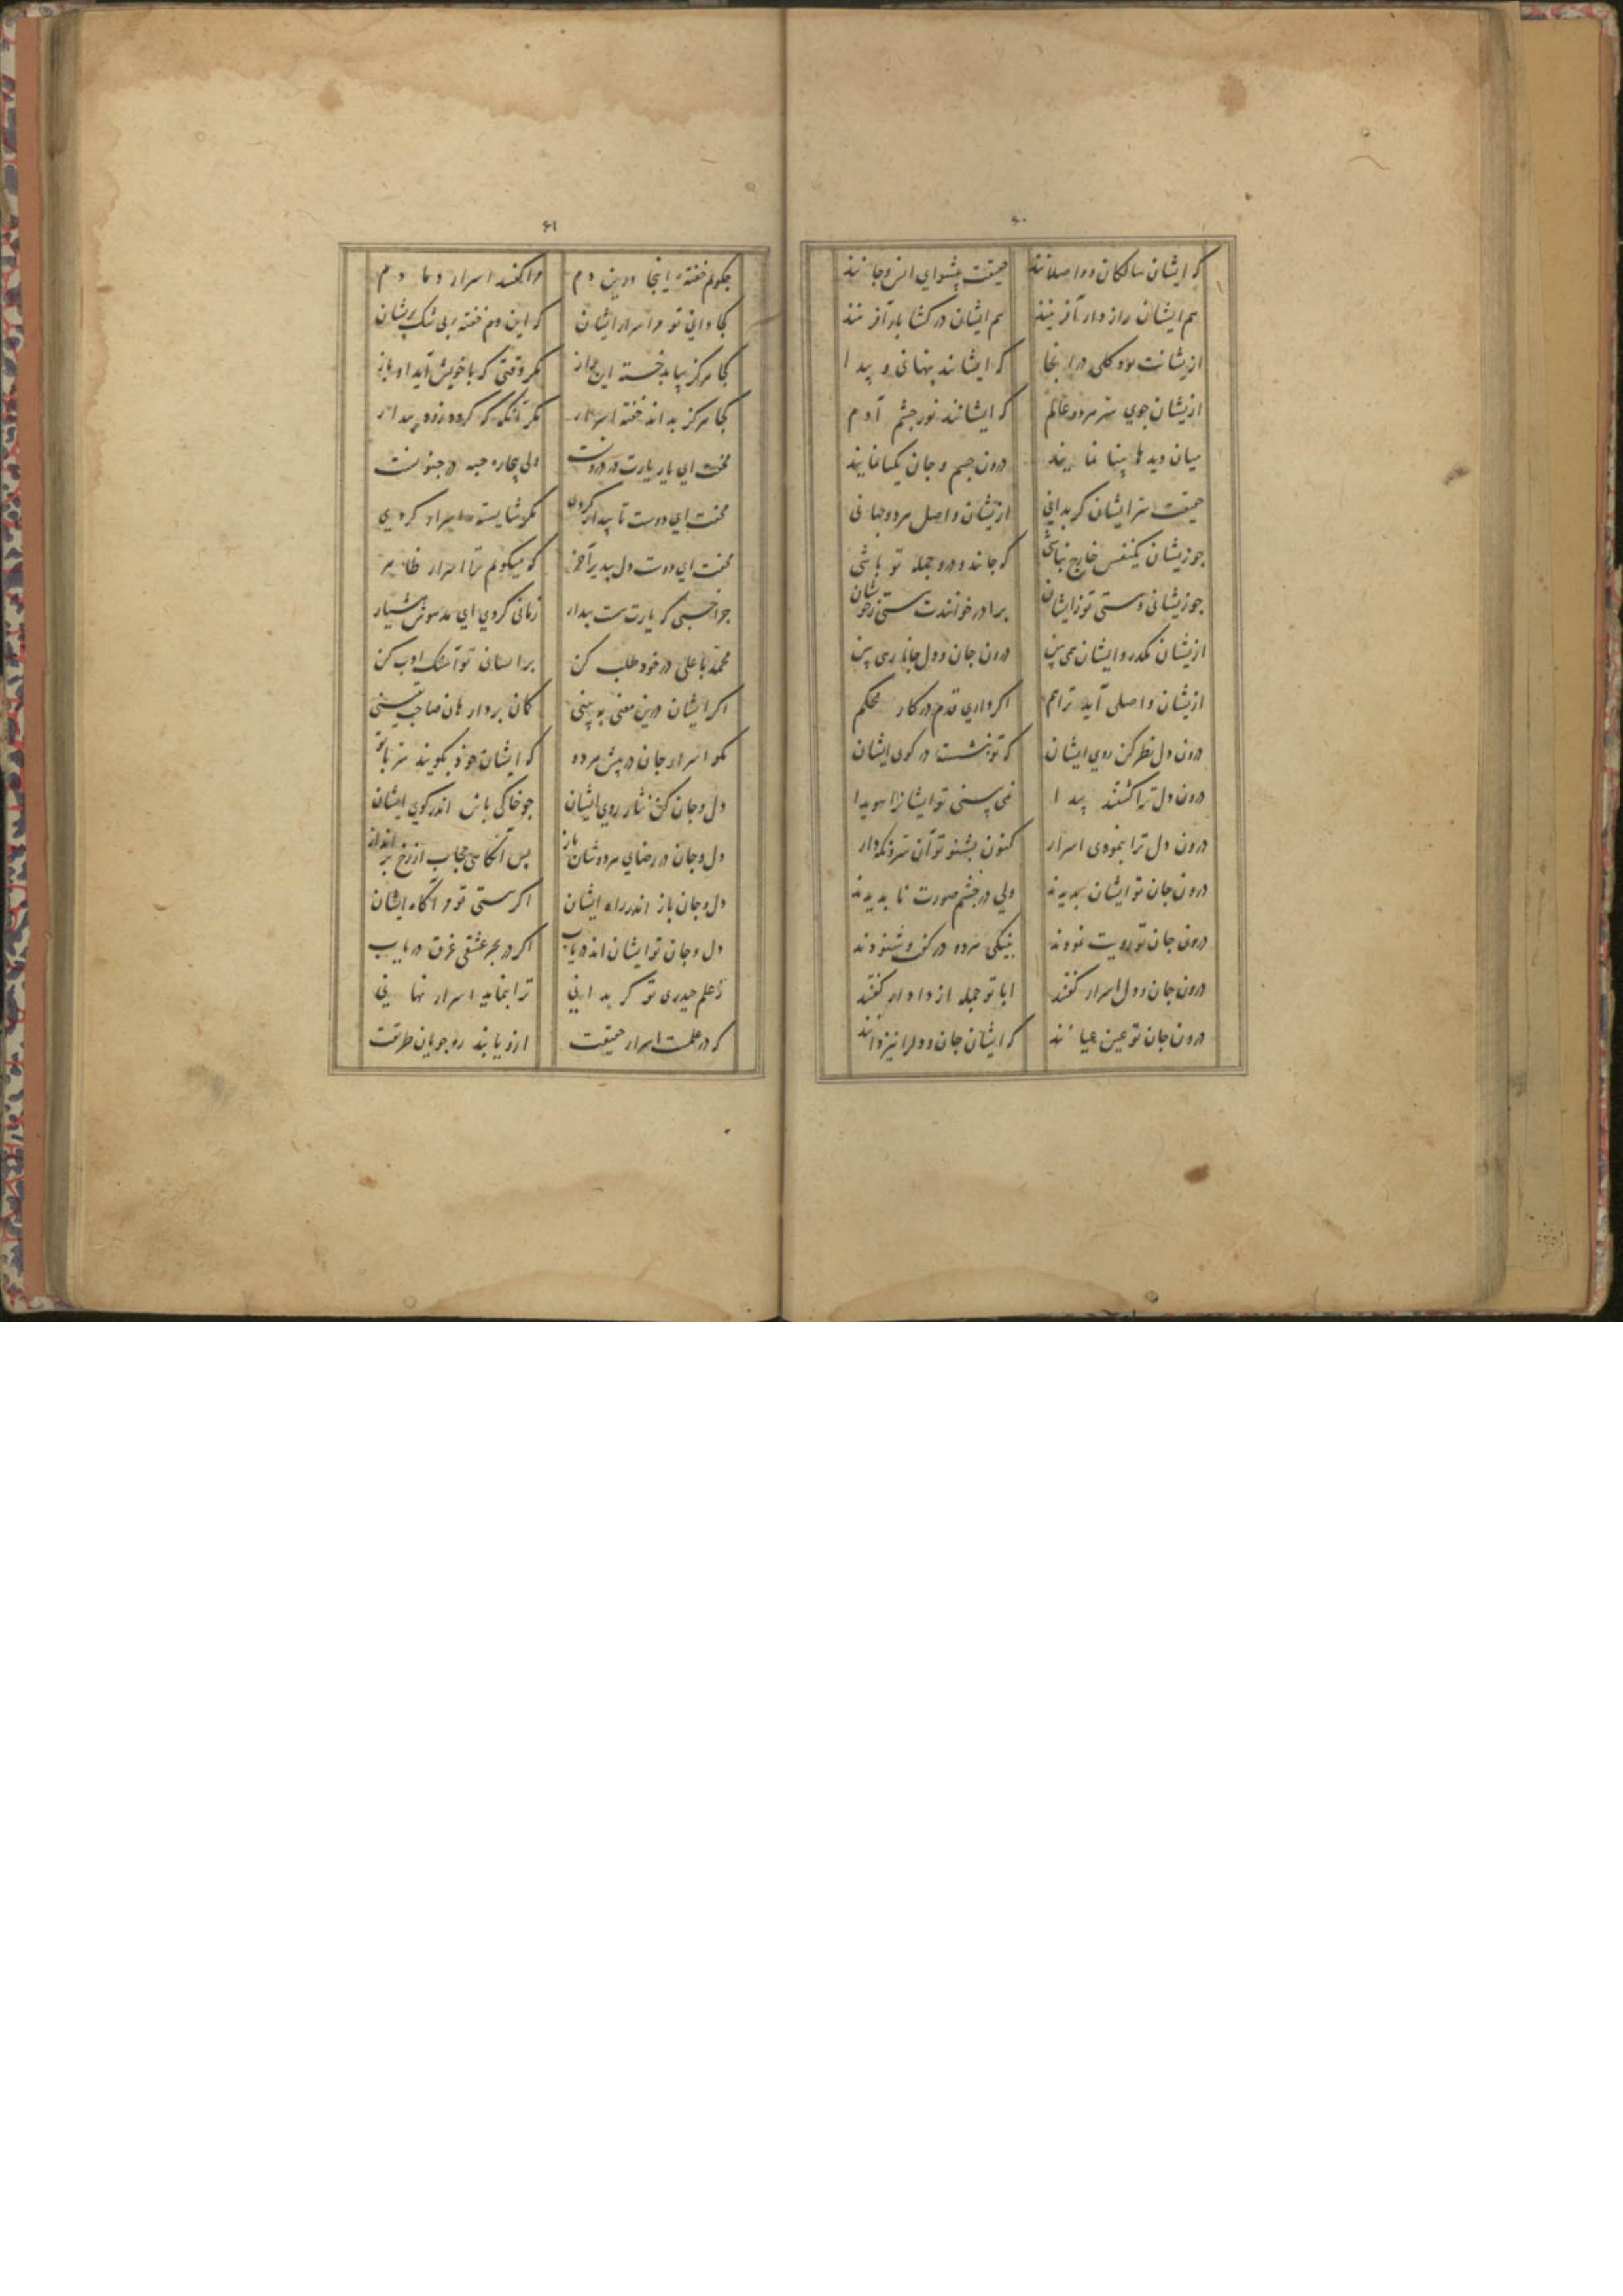 ۶۰
که ایشان سالکان و واصلانند حقیقت پیشوای انس و جانند
هم ایشان رازدار آفرینند هم ایشان در کشا یار آفرینند
ازیشانت بود کلی در اینجا که ایشانند پنهانی و پیدا
ازیشان جوی سر هر دو عالم که ایشانند نور چشم آدم
میان دیدها بینا نمایند درون جسم و جان یکتا نمایند
حقیقت سر ایشان کر بدانی ازیشان واصل هر دو جهانی
جو زیشان یکنفس خارج نباشی که جاند و در و جمله تو باشی
جو زیشانی و هستی تو زایشان برادر خوانندت هستی زخویشان
ازیشان مکذر و ایشان همی بین درون جان و دل جانان همی بین
ازیشان واصلی آید ترا هم اکر داری قدم در کار محکم
درون دل نظر کن روی ایشان که تو نشست در کوی ایشان
درون دل ترا کشتند پیدا نمی بینی تو ایشانرا هویدا
درون دل ترا بنمودی اسرار کنون بشنو تو آن سر و نکه دار
درون جان تو ایشان بدیدند ولی در چشم صورت نابدیدند
درون جان تو رویت نمودند بنیکی هر دو در کفت و شنودند
درون جان و دل اسرار کفتند ابا تو جمله از دادار کفتند
درون جان تو عین عیانند که ایشان جان و دلرا نیز دانند
۶۱
جکویم خفتهٔ اینجا درین دم ترا کفتند اسرار دمادم
کجا دانی تو مر اسرار ایشان که این دم خفتهٔ بی شک پریشان
کجا هرکز بیابد خسته این راز مکر وقتی که با خویش آید او باز
کجا هرکز بداند خفته اسرار مکر آنکه که کردد زود بیدار
مخفت ای یار یارت در درونست ولی بیچاره جبه در جنونست
مخفت ای دوست تا بیدار کردی مکر شایسته اسرار کردی
مخفت ای دوست دل بپذیر آخر که میکویم ترا اسرار ظاهر
جرا خسبی که یارت هست بیدار زمانی کردی ای مدهوش هشیار
محمد با علی در خود طلب کن بر ایشان تو آهنک ادب کن
اکر ایشان درین معنی ببینی کمان بردار هان صاحب یقینی
مکو اسرار جان در پیش هر دو که ایشان خود بکویند سر با تو
دل و جان کن نثار روی ایشان جو خاکی باش اندر کوی ایشان
دل و جان در رضای هر دو شان باز بس آنکاهی حجاب از رخ بر انداز
دل و جان باز اندر راه ایشان اکر هستی تو مر آکاه ایشان
دل و جان تو ایشان اند دریاب اکر در بحر عشقی غرق دریاب
ز علم حیدری تو کر بدانی ترا بنماید اسرار نهانی
که در علمست اسرار حقیقت ازو یابند ره جویان طریقت